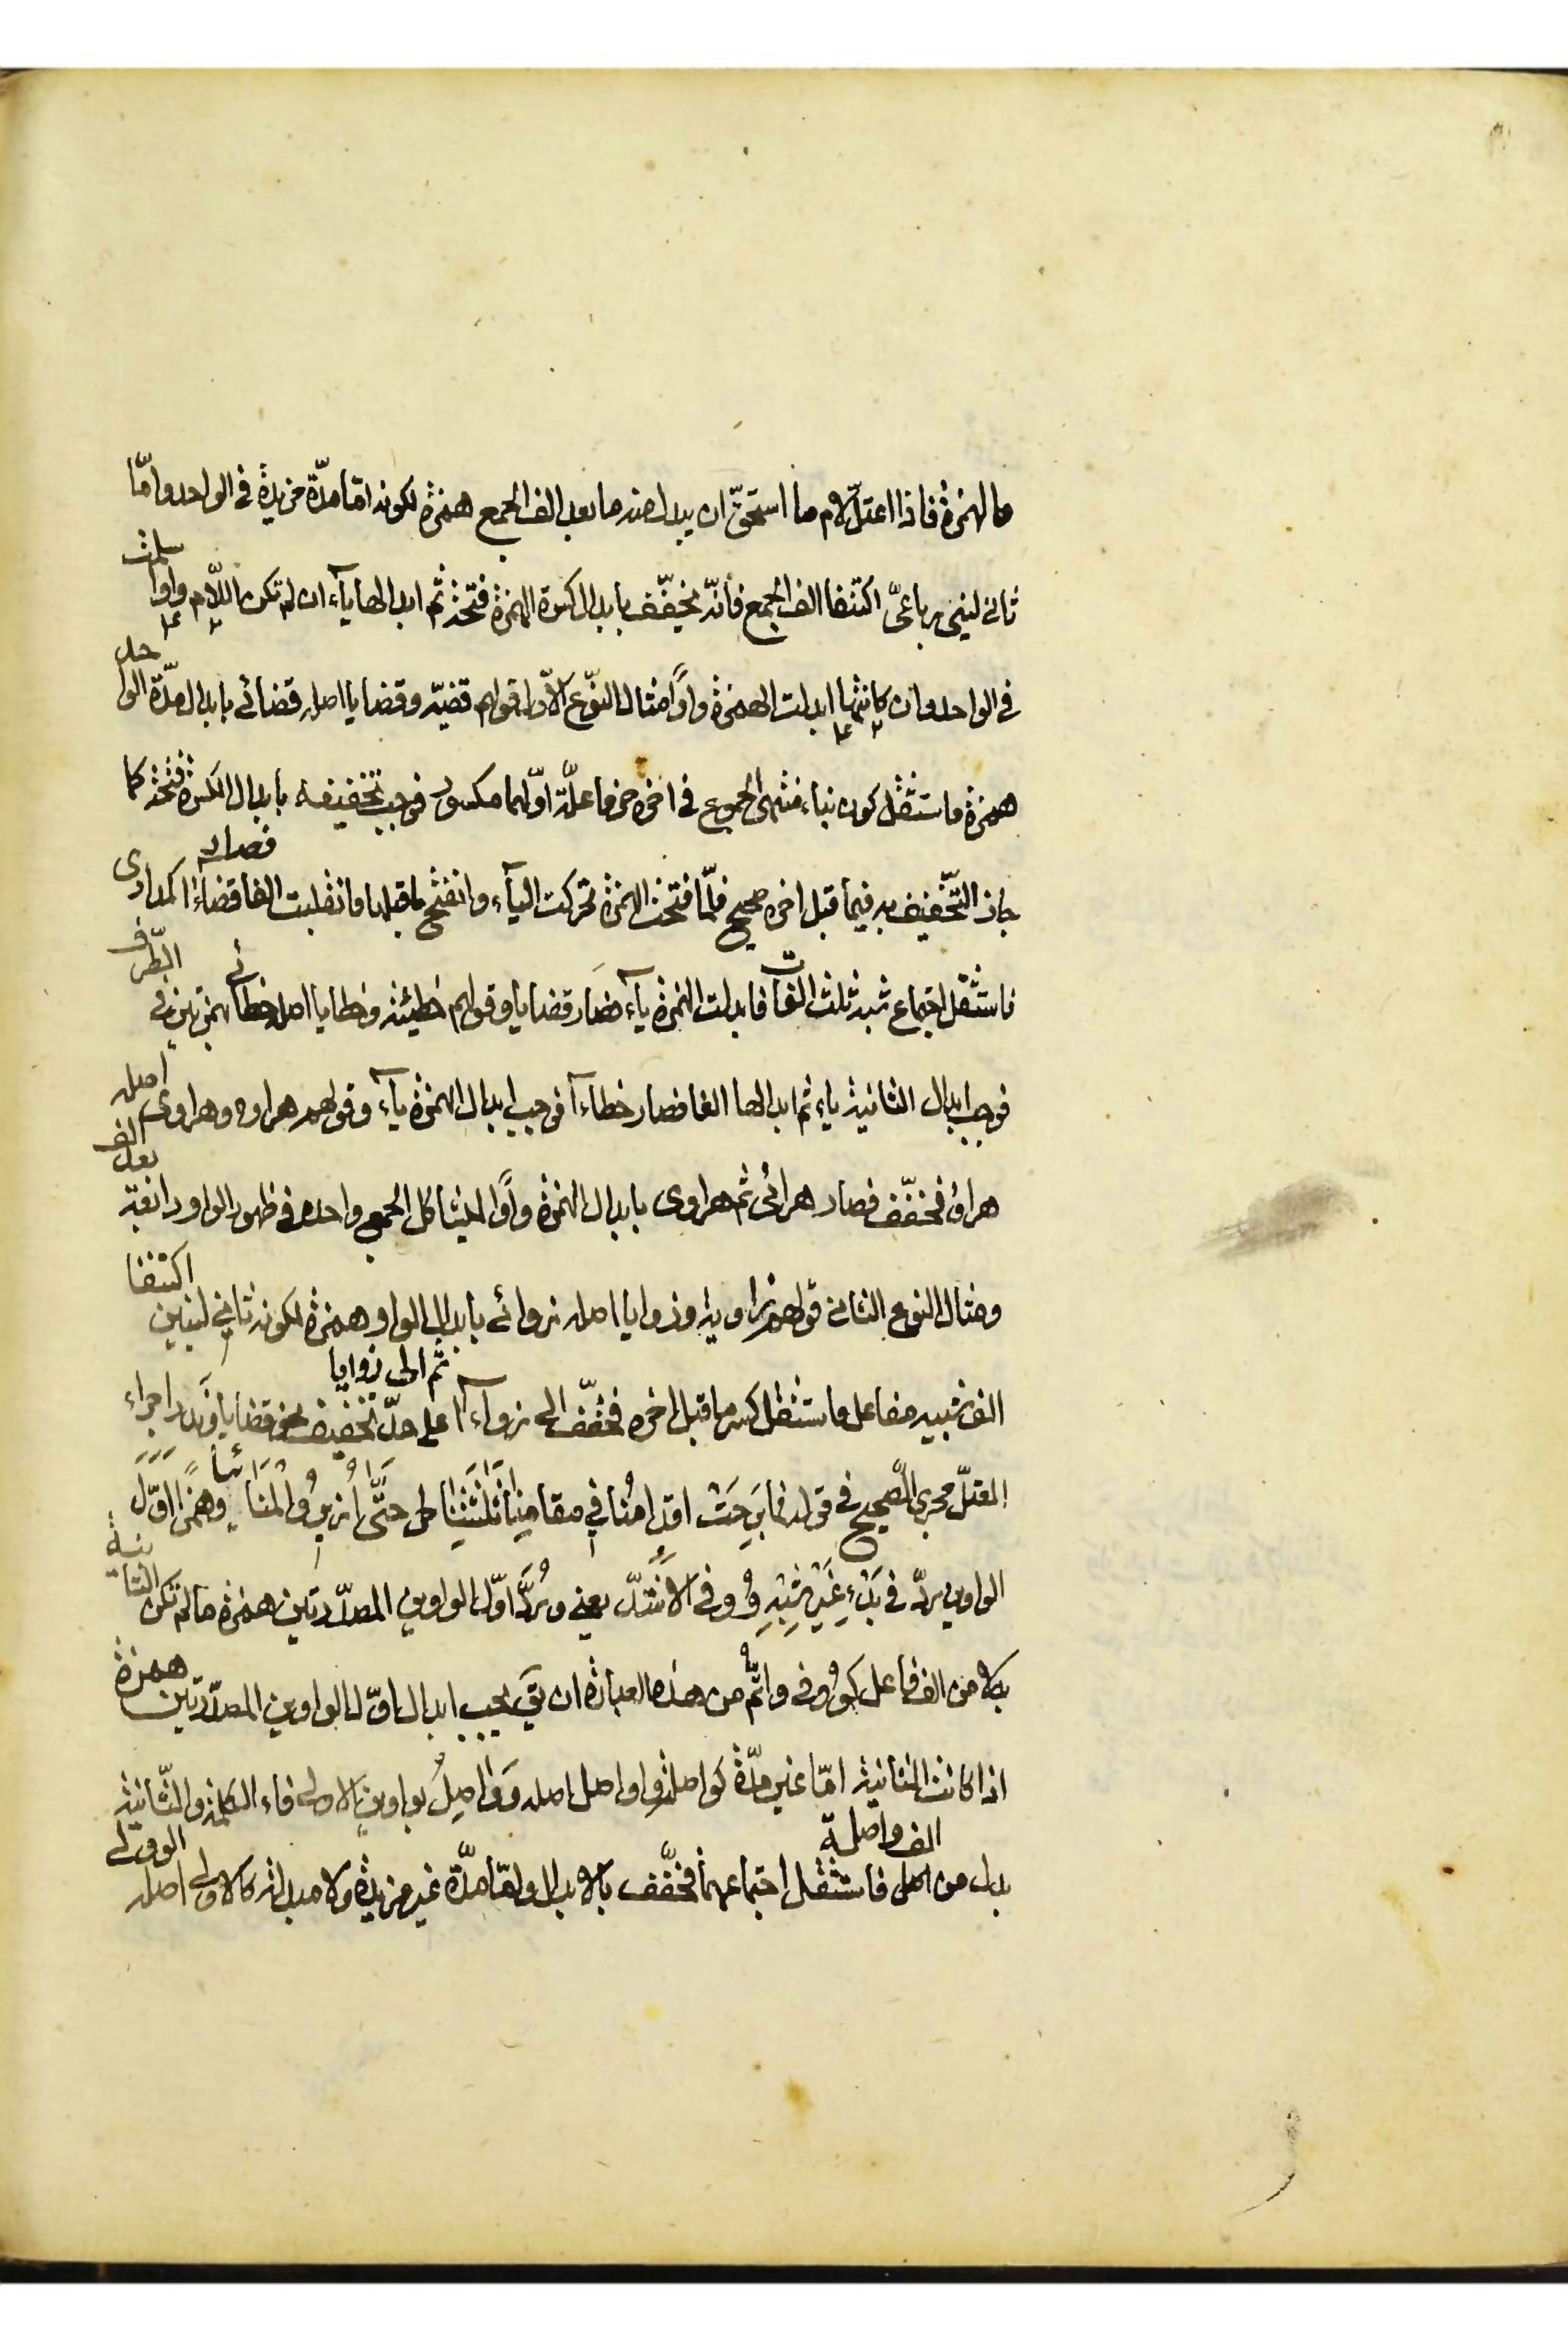 ما لهمزة فاذا اعتلّ لام ما استحقّ ان يبدل منه ما بعد الف الجمع همزة لكونه امّا مدّة مزيدة في الواحد وامّا
ثاني لينى رباعىّ اكتنفا الف الجمع فانّه يخفّف بابدال كسرة الهمزة فتحة ثم ابدالها ياء ان لم تكن اللّام واوا سلمت
في الواحد وان كانتها ابدلت الهمزة واوًا مثال النّوع الاوّل قولهم قضيّه وقضايا اصله قضائى بابدال مدّة الواحد
همزة فاستثقل كون بناء منتهى الجموع في اخره حرفا علّة اوّلهما مكسور فوجب تخفيفه بابدال الكسرة فتحة كما
جاز التّخفيف به فيما قبل اخره صحيح فلمّا فتحت الهمزة تحركت الياء وانفتح ما قبلها فانقلبت الفا فصار قضاءا كمدارى
فاستثقل اجتماع شبه ثلث الفات فابدلت الهمزة ياء فصار قضايا وقولهم خطيئة وخطايا اصله خطائى بهمزتين في الطّرف
فوجب ابدال الثانية ياء ثم ابدالها الفا فصار خطاءا فوجب ابدال الهمزة ياء وقولهم هراوه وهراوى اصله
هراؤ فخفّف فصار هرائى ثم هراوى بابدال الهمزة واوًا ليشاكل الجمع واحده في ظهور الواو رابعة بعد الف
ومثال النوع الثانى قولهم زاويه وزوايا اصله زوائى بابدال الواو همزة لكونه ثاني لينين اكتنفا
الف شبيه مفاعل فاستثقل كسر ما قبل اخره فخفّف الى زواءا ثم الى زوايا على حدّ تخفيف نحو قضايا وندر اجراء
المعتلّ مجرى الصّحيح في قوله فما بَرِحَتْ اقدامُنا في مقامِنا ثَلثَتُنا حتّى اُزِيرُوا المَنائيا وهمزا اوّلَ
الواوين رد في بدءِ غَيرِ شِبْهِ وُوفي الاَشُدّ يعني ورُدَّ اوّل الواوين المصدّرتين همزة ما لم تكن الثانية
بدلا من الف فاعل كوُوفى واتمّ من هذه العبارة ان يق يجب ابدال اوّل الواوين المصدّرتين همزة
اذا كانت الثانية امّا غير مدّة كواصلة واواصل اصله وَوَاصِلُ بواوين الاولى فاء الكلمة والثّانية
بدل من الف واصلة فاستثقل اجتماعهما فخفّف بالابدال وامّا مدّة غير مزيدة ولا مبدلة كالاولى اصله الوولى